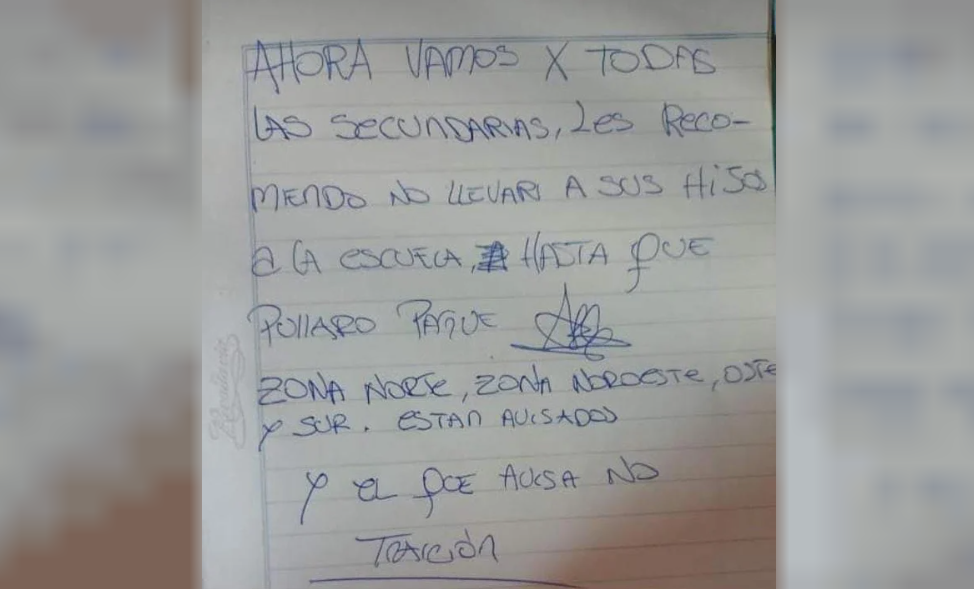 AHORA VAMOS X TODAS
LAS SECUNDARIAS, LES RECO-
MENDO NO LLEVAR A SUS HIJOS
A LA ESCUELA, HASTA QUE
PULLARO PAGUE
ZONA NORTE, ZONA NOROESTE, OSTE
Y SUR. ESTAN AVISADOS
Y EL QUE AVISA NO
TRAICIÓN
Rivadavia